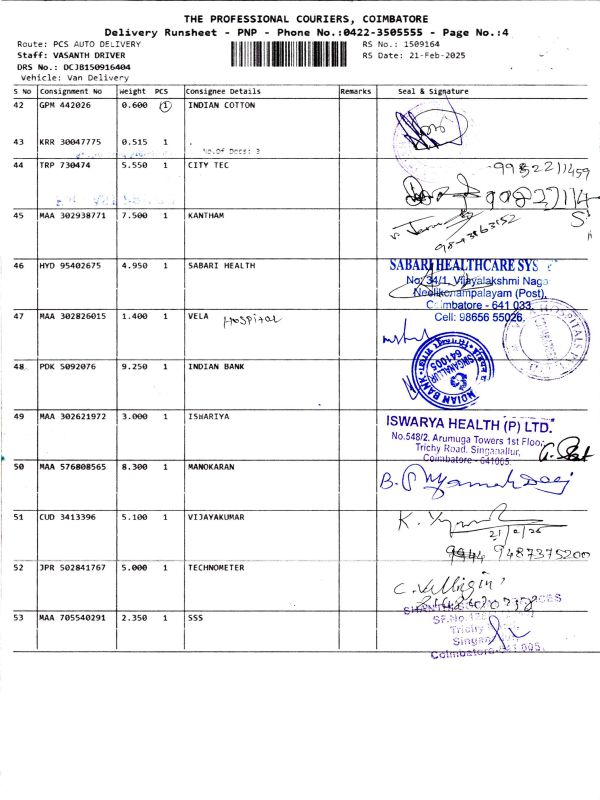 THE PROFESSIONAL COURIERS, COIMBATORE
Delivery Runsheet - PNP - Phone No.:0422-3505555 - Page No.:4
Route: PCS AUTO DELIVERY
RS No.: 1509164
Staff: VASANTH DRIVER
RS Date: 21-Feb-2025
DRS No.: DCJB150916404
Vehicle: Van Delivery
S No Consignment No Weight PCS Consignee Details Remarks Seal & Signature
42 GPM 442026 0.600 1 INDIAN COTTON
43 KRR 30047775 0.515 1 .
No.Of Docs: 3
44 TRP 730474 5.550 1 CITY TEC
9952211459
45 MAA 302938771 7.500 1 KANTHAM
46 HYD 95402675 4.950 1 SABARI HEALTH
SABARI HEALTHCARE SYS
No: 34/1, Vijayalakshmi Naga
Neelikonampalayam (Post),
Coimbatore - 641 033.
Cell: 98656 55026.
47 MAA 302826015 1.400 1 VELA Hospital
48 PDK 5092076 9.250 1 INDIAN BANK
INDIAN BANK
SINGANALLUR
641005
49 MAA 302621972 3.000 1 ISWARIYA
ISWARYA HEALTH (P) LTD.
No.548/2, Arumuga Towers 1st Floor,
Trichy Road, Singanallur,
Coimbatore - 641005.
50 MAA 576808565 8.300 1 MANOKARAN
51 CUD 3413396 5.100 1 VIJAYAKUMAR
9487375200
52 JPR 502841767 5.000 1 TECHNOMETER
53 MAA 705540291 2.350 1 SSS
SF.No.
Trichy
Singan
Coimbatore